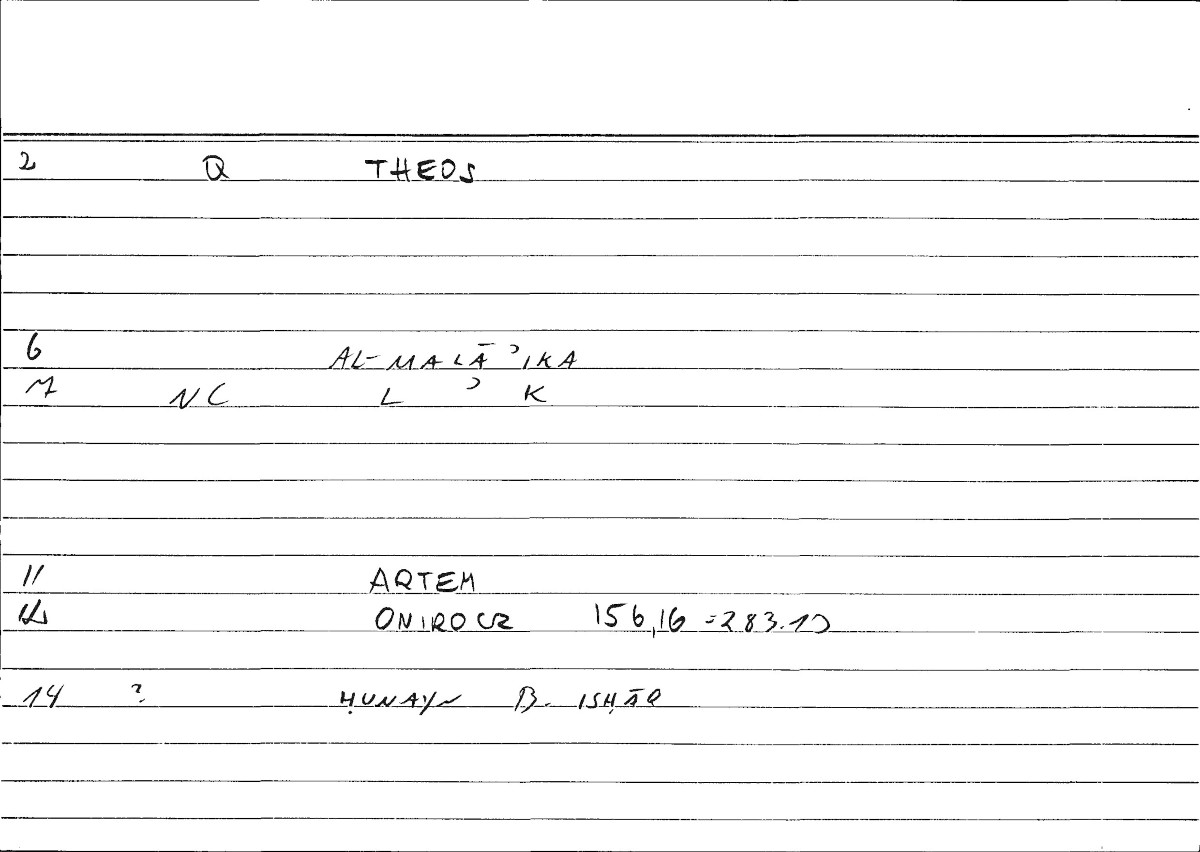 2 Q THEOS
6 AL-MALĀʾIKA
7 NC L ʾ K
11 ARTEM
12 ONIROCR 156,16 = 283.10
14 ? ḤUNAYN B. ISḤĀQ